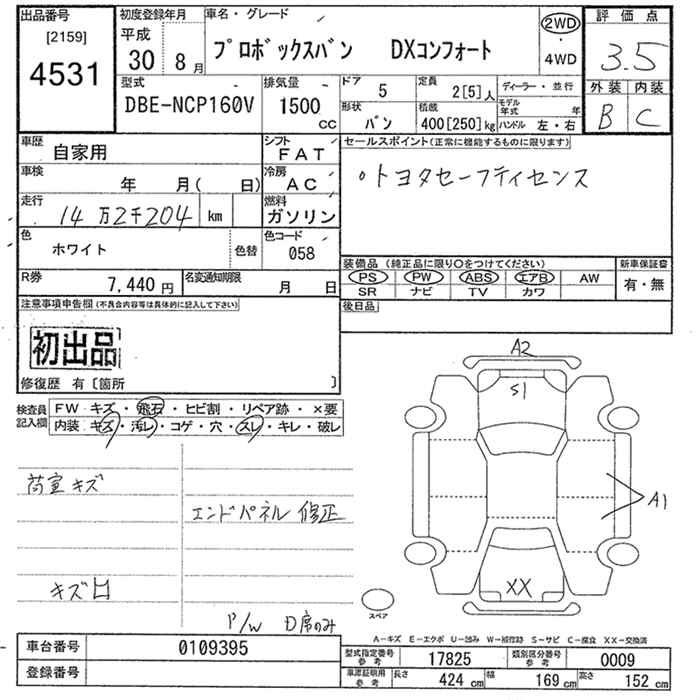 出品番号
[2159]
4531
初度登録年月
平成
30 8月
車名・グレード
プロボックスバン DXコンフォート
2WD
・
4WD
評価点
3.5
外装 内装
B C
型式
DBE-NCP160V
排気量
1500
CC
ドア
5
定員
2[5]人
ディーラー・並行
形状
バン
積載
400[250]kg
モデル年式 年
ハンドル 左・右
車歴
自家用
シフト
FAT
車検
年 月( 日)
冷房
AC
走行
14万2千204 km
燃料
ガソリン
色
ホワイト
色替
色コード
058
R券
7,440円
名変通知期限
月 日
セールスポイント(正常に機能するものに限ります)
・トヨタセーフティセンス
装備品(純正品に限り○をつけてください)
新車保証書
PS PW ABS エアB AW
SR ナビ TV カワ
有・無
後日品
注意事項申告欄(不具合内容等は具体的に記入して下さい)
初出品
修復歴 有〔箇所 〕
検査員
記入欄
FW キズ・飛石・ヒビ割・リペア跡・×要
内装 キズ・汚レ・コゲ・穴・スレ・キレ・破レ
荷室キズ
エンドパネル 修正
キズ凹
P/W D席のみ
A2
S1
A1
XX
スペア
A-キズ E-エクボ U-凹み W-補修跡 S-サビ C-腐食 XX-交換済
車台番号
0109395
登録番号
型式指定番号
参考
17825
類別区分番号
参考
0009
車庫証明用
参考
長さ
424 cm
幅
169 cm
高さ
152 cm